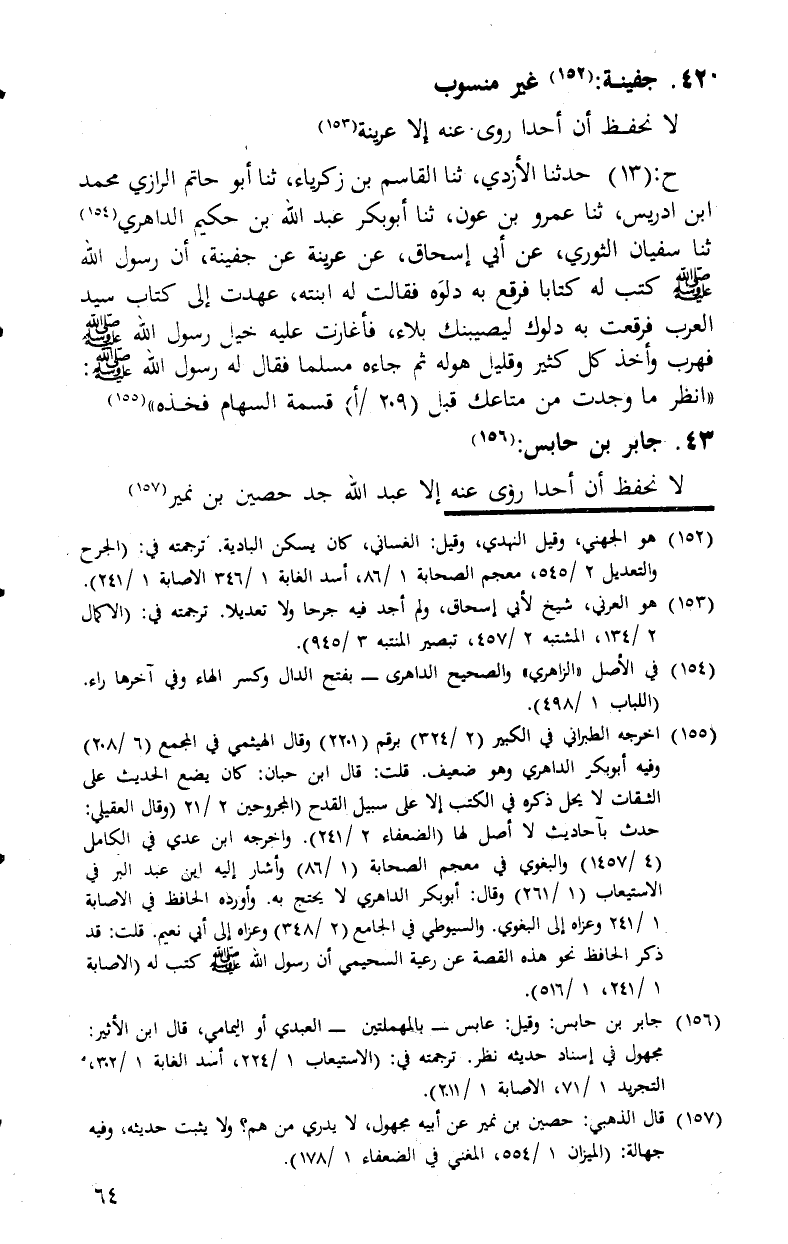 ٤٢٠. جفينة:(١٥٢) غير منسوب
لا نحفظ أن أحدا روى عنه إلا عرينة(١٥٣)
ح:(١٣) حدثنا الأزدي، ثنا القاسم بن زكرياء، ثنا أبو حاتم الرازي محمد
ابن ادريس، ثنا عمرو بن عون، ثنا أبوبكر عبد الله بن حكيم الداهري(١٥٤)
ثنا سفيان الثوري، عن أبي إسحاق، عن عرينة عن جفينة، أن رسول الله
ﷺ كتب له كتابا فرقع به دلوَه فقالت له ابنته، عهدت إلى كتاب سيد
العرب فرقعت به دلوك ليصيبنك بلاء، فأغارت عليه خيل رسول الله ﷺ
فهرب وأخذ كل كثير وقليل هوله ثم جاءه مسلما فقال له رسول الله ﷺ:
«انظر ما وجدت من متاعك قبل (٢٠٩ /أ) قسمة السهام فخذه»(١٥٥)
٤٣. جابر بن حابس:(١٥٦)
لا نحفظ أن أحدا رؤى عنه إلا عبد الله جد حصين بن نمير(١٥٧)
(١٥٢) هو الجهني، وقيل النهدي، وقيل: الغساني، كان يسكن البادية. ترجمته في: (الجرح
والتعديل ٢ /٥٤٥، معجم الصحابة ١ /٨٦، أسد الغابة ١ /٣٤٦ الاصابة ١ /٢٤١).
(١٥٣) هو العرني، شيخ لأبي إسحاق، ولم أجد فيه جرحا ولا تعديلا. ترجمته في: (الاكمال
٢ /١٣٤، المشتبه ٢ /٤٥٧، تبصير المنتبه ٣ /٩٤٥).
(١٥٤) في الأصل «الزاهري» والصحيح الداهرى ــ بفتح الدال وكسر الهاء وفي آخرها راء.
(اللباب ١ /٤٩٨).
(١٥٥) اخرجه الطبراني في الكبير (٢ /٣٢٤) برقم (٢٢٠١) وقال الهيثمي في المجمع (٦ /٢٠٨)
وفيه أبوبكر الداهري وهو ضعيف. قلت: قال ابن حبان: كان يضع الحديث على
الثقات لا يحل ذكره في الكتب إلا على سبيل القدح (المجروحين ٢ /٢١ (وقال العقيلي:
حدث بآحاديث لا أصل لها (الضعفاء ٢ /٢٤١). واخرجه ابن عدي في الكامل
(٤ /١٤٥٧) والبغوي في معجم الصحابة (١ /٨٦) وأشار إليه اين عبد البر في
الاستيعاب (١ /٢٦١) وقال: أبوبكر الداهري لا يحتج به. وأورده الحافظ في الاصابة
١ /٢٤١ وعزاه إلى البغوي. والسيوطي في الجامع (٢ /٣٤٨) وعزاه إلى أبي نعيم. قلت: قد
ذكر الحافظ نحو هذه القصة عن رعية السحيمي أن رسول الله ﷺ كتب له (الاصابة
١ /٢٤١، ١ /٥١٦).
(١٥٦) جابر بن حابس: وقيل: عابس ــ بالمهملتين ــ العبدي أو اليمامي، قال ابن الأثير:
مجهول في إسناد حديثه نظر. ترجمته في: (الاستيعاب ١ /٢٢٤، أسد الغابة ١ /٣٠٢،
التجريد ١ /٧١، الاصابة ١ /٢١١).
(١٥٧) قال الذهبي: حصين بن نمير عن أبيه مجهول، لا يدري من هم؟ ولا يثبت حديثه، وفيه
جهالة: (الميزان ١ /٥٥٤، المغني في الضعفاء ١ /١٧٨).
٦٤